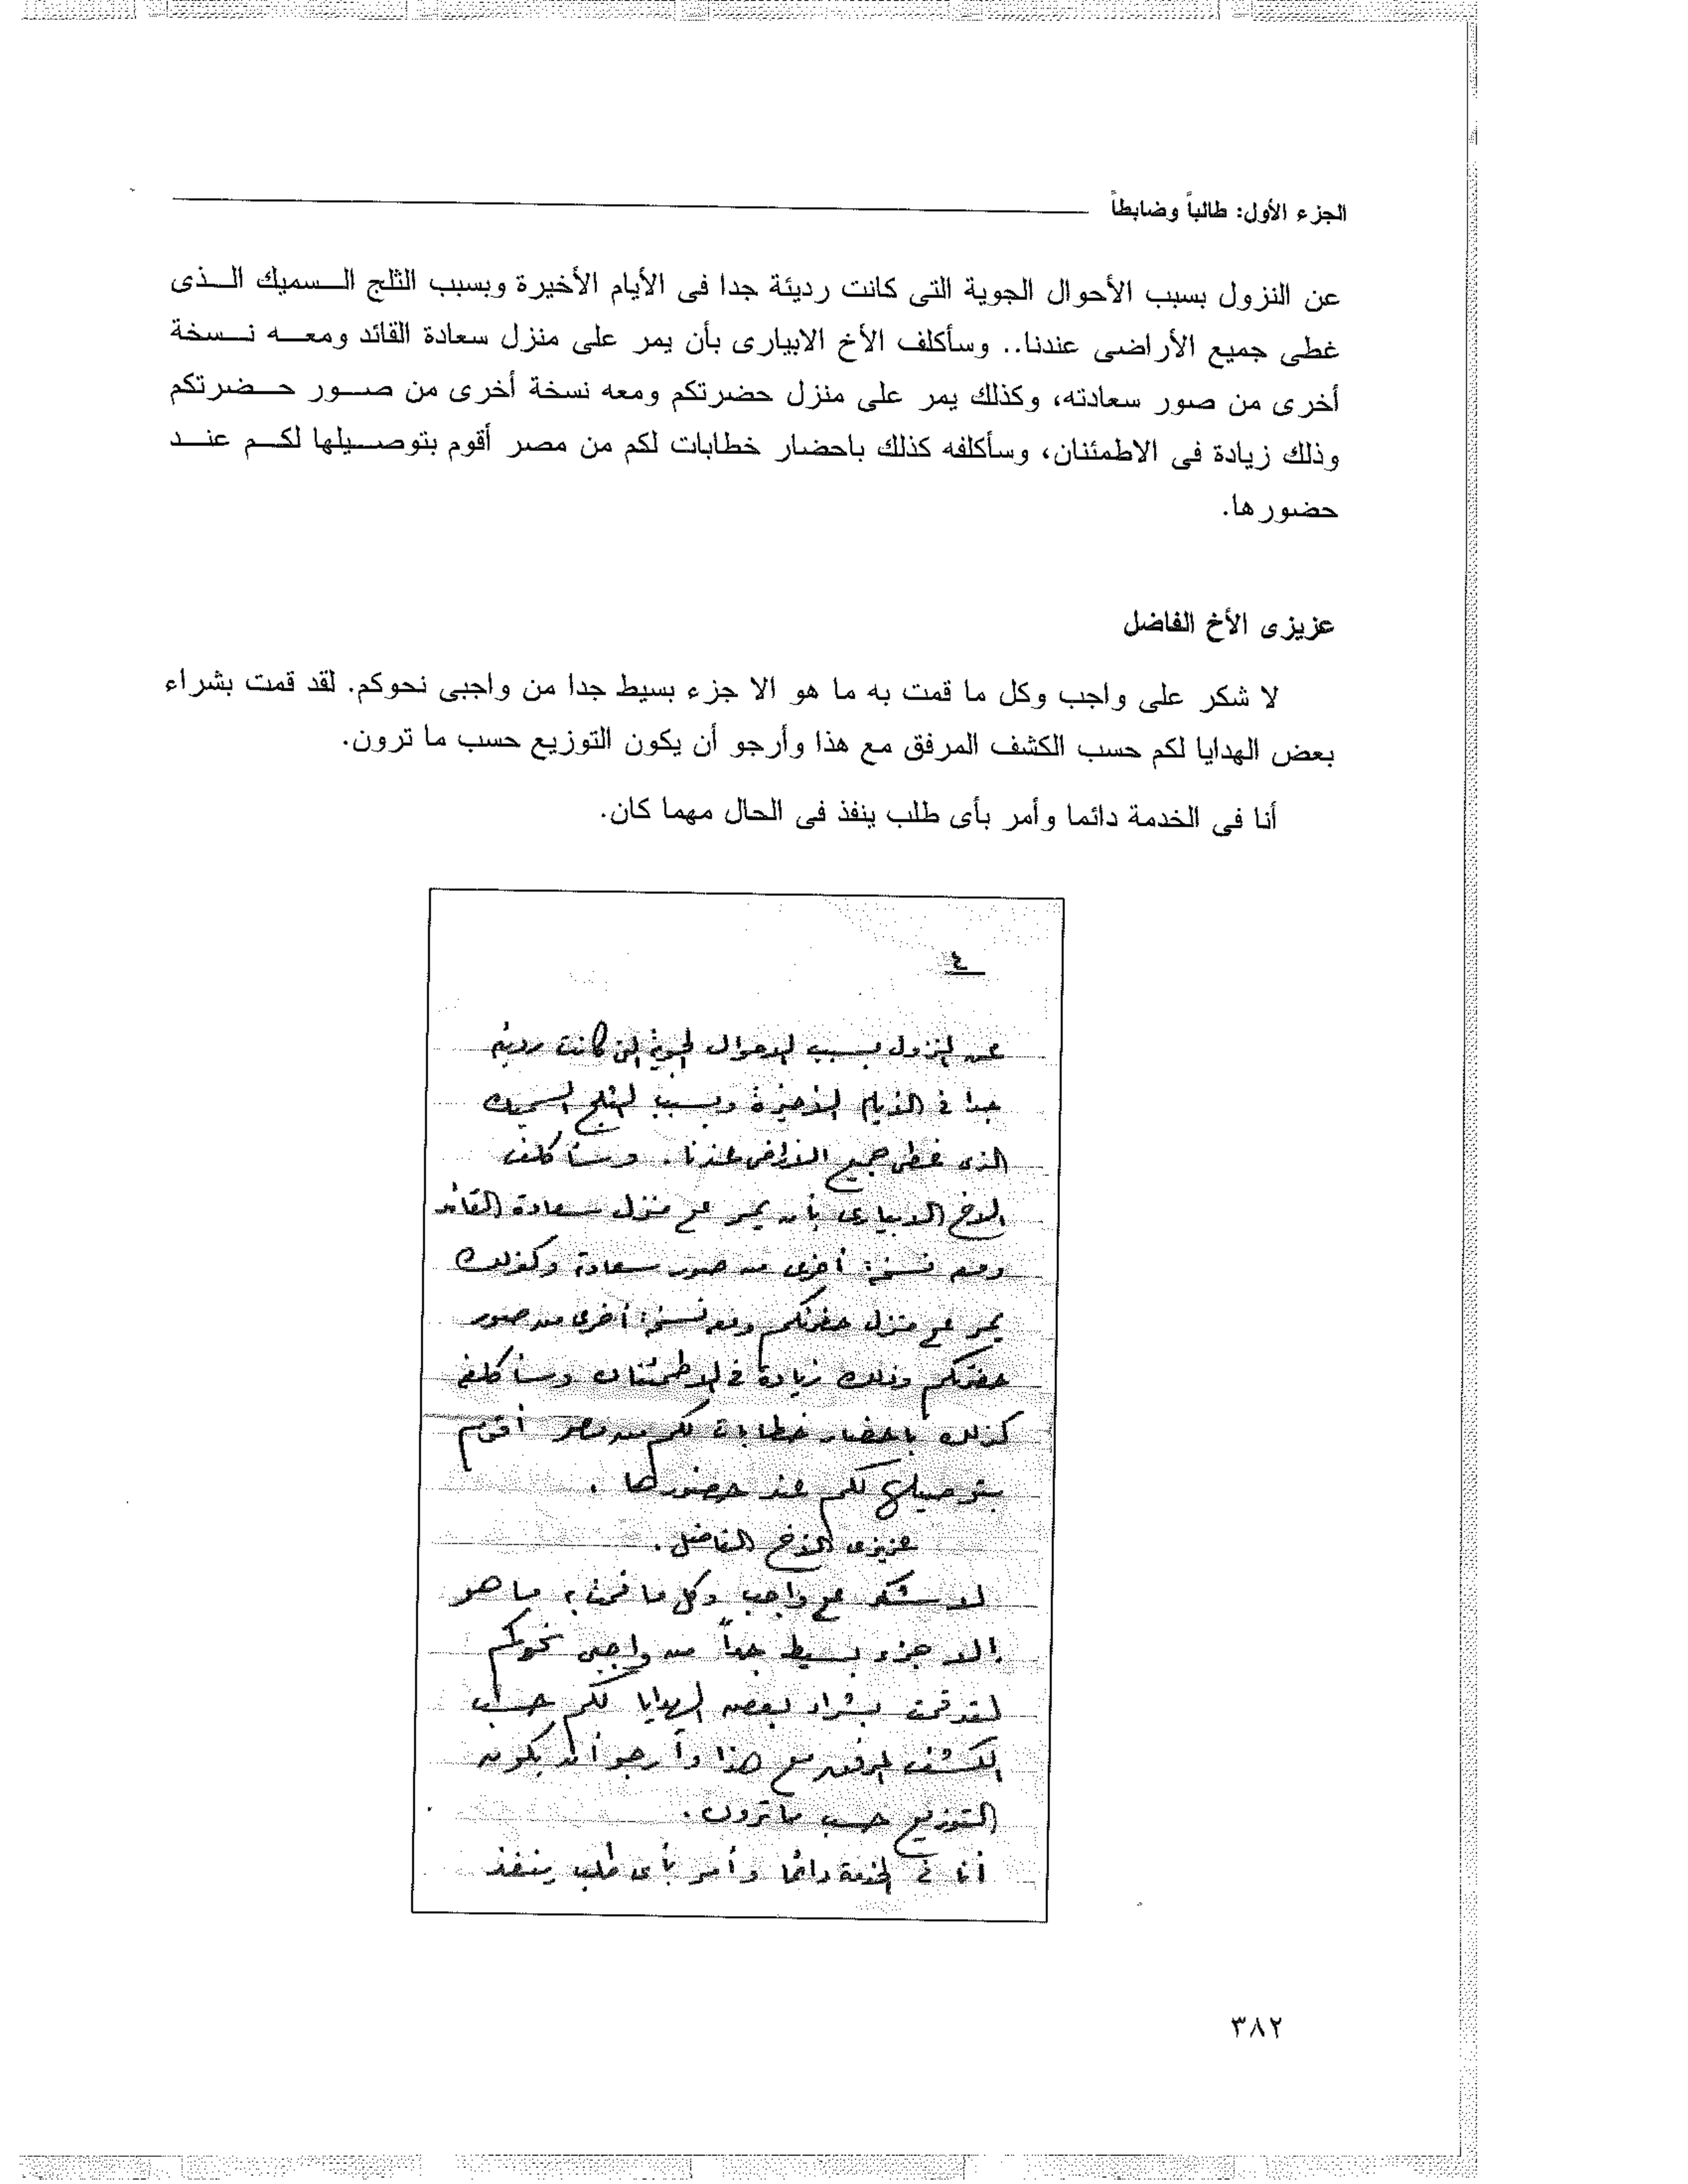 الجزء الأول: طالباً وضابطاً
عن النزول بسبب الأحوال الجوية التى كانت رديئة جدا فى الأيام الأخيرة وبسبب الثلج السميك الذى
غطى جميع الأراضى عندنا.. وسأكلف الأخ الابيارى بأن يمر على منزل سعادة القائد ومعه نسخة
أخرى من صور سعادته، وكذلك يمر على منزل حضرتكم ومعه نسخة أخرى من صور حضرتكم
وذلك زيادة فى الاطمئنان، وسأكلفه كذلك باحضار خطابات لكم من مصر أقوم بتوصيلها لكم عند
حضورها.
عزيزى الأخ الفاضل
لا شكر على واجب وكل ما قمت به ما هو الا جزء بسيط جدا من واجبى نحوكم. لقد قمت بشراء
بعض الهدايا لكم حسب الكشف المرفق مع هذا وأرجو أن يكون التوزيع حسب ما ترون.
أنا فى الخدمة دائما وأمر بأى طلب ينفذ فى الحال مهما كان.
٤
عن النزول بسبب الاحوال الجوية التى كانت رديئة
جدا فى الأيام الأخيرة وبسبب الثلج السميك
الذى غطى جميع الأراضى عندنا . وسأكلف
الاخ الابيارى بأن يمر على منزل سعادة القائد
ومعه نسخة أخرى من صور سعادته وكذلك
يمر على منزل حضرتكم ومعه نسخة أخرى من صور
حضرتكم وذلك زيادة فى الاطمئنان وسأكلفه
كذلك باحضار خطابات لكم من مصر أقوم
بتوصيلها لكم عند حضورها .
عزيزى الأخ الفاضل .
لا شكر على واجب وكل ما قمت به ما هو
إلا جزء بسيط جداً من واجبى نحوكم
لقد قمت بشراء بعض الهدايا لكم حسب
الكشف المرفق مع هذا وأرجو أن يكون
التوزيع حسب ما ترون .
أنا فى الخدمة دائما وأمر بأى طلب ينفذ
٣٨٢